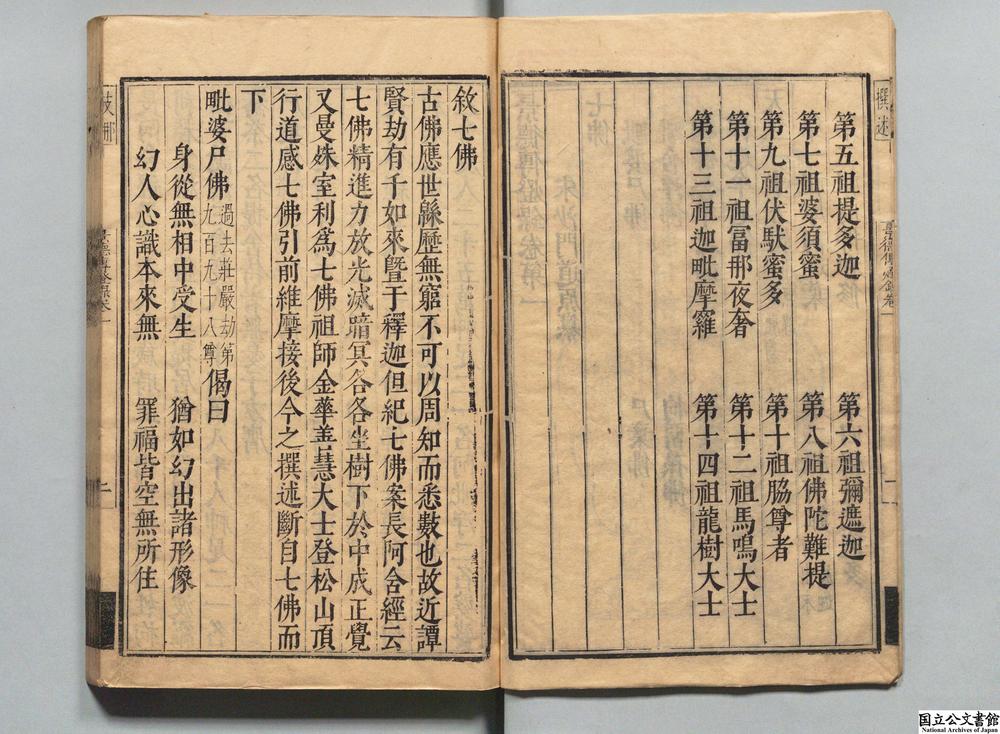 撰述
第五祖提多迦 第六祖彌遮迦
第七祖婆須蜜 第八祖佛陀難提
第九祖伏馱蜜多 第十祖脇尊者
第十一祖富那夜奢 第十二祖馬鳴大士
第十三祖迦毗摩羅 第十四祖龍樹大士
敘七佛
古佛應世緜歷無窮不可以周知而悉數也故近譚
賢劫有千如來暨于釋迦但紀七佛案長阿含經云
七佛精進力放光滅暗冥各各坐樹下於中成正覺
又曼殊室利爲七佛祖師金華善慧大士登松山頂
行道感七佛引前維摩接後今之撰述斷自七佛而
下
毗婆尸佛過去莊嚴劫第九百九十八尊偈曰
身從無相中受生 猶如幻出諸形像
幻人心識本來無 罪福皆空無所住
国立公文書館
National Archives of Japan